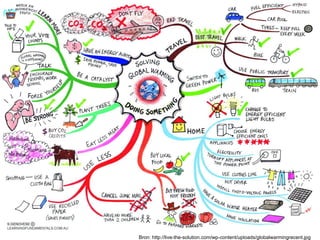 SOLVING
GLOBAL WARMING
DOING SOMETHING
TRAVEL
DON'T FLY
BAD TRAVEL
BEST TRAVEL
CAR
FUEL EFFICIENT
HYPRID
ELECTRIC
CAR POOL
TYRES - KEEP FULL
EVERY WEEK
WALK
BIKE
USE PUBLIC TRANSPORT
BUS
TRAIN
SWITCH TO
GREEN POWER
LIGHT BULBS
CHANGE TO
ENERGY EFFICIENT
LIGHT BULBS
HOME
CHOOSE ENERGY
EFFICIENT ONES
APPLIANCES
ELECTRICITY
TURN OFF APPLIANCES AT
THE POWER POINT
USE CLOTHS LINE
NOT DRYER
INSTALL PHOTO-VOLTAIC PANELS
HAVE A SOLAR WATER HEATER
HAVE INSULATION
USE LESS
BUY LOCAL
FOOD
BUY FRESH FOOD
NOT FROZEN
GO TO FARMERS MARKETS
CANCEL JUNK MAIL
HAVE NO MORE
THAN 2 CHILDREN
SHOPPING - USE A
CLOTH BAG
USE RECYCLED
PAPER
(SAVE PLANTS)
EAT LESS MEAT
PLANT TREES
BUY CO2
CREDITS
BE STRONG
FORCE YOURSELF
BE A CATALYST
HAVE AN ENERGY AUDIT
SAVE POWER, SAVE
MONEY
CO2
CO2
LEARN MORE
YOUR VOTE
COUNTS
TALK
ENCOURAGE
FRIENDS, WORK
SCHOOL
LEARNINGFUNDAMENTALS.COM.AU
Bron: http://live-the-solution.com/wp-content/uploads/globalwarmingrecent.jpg